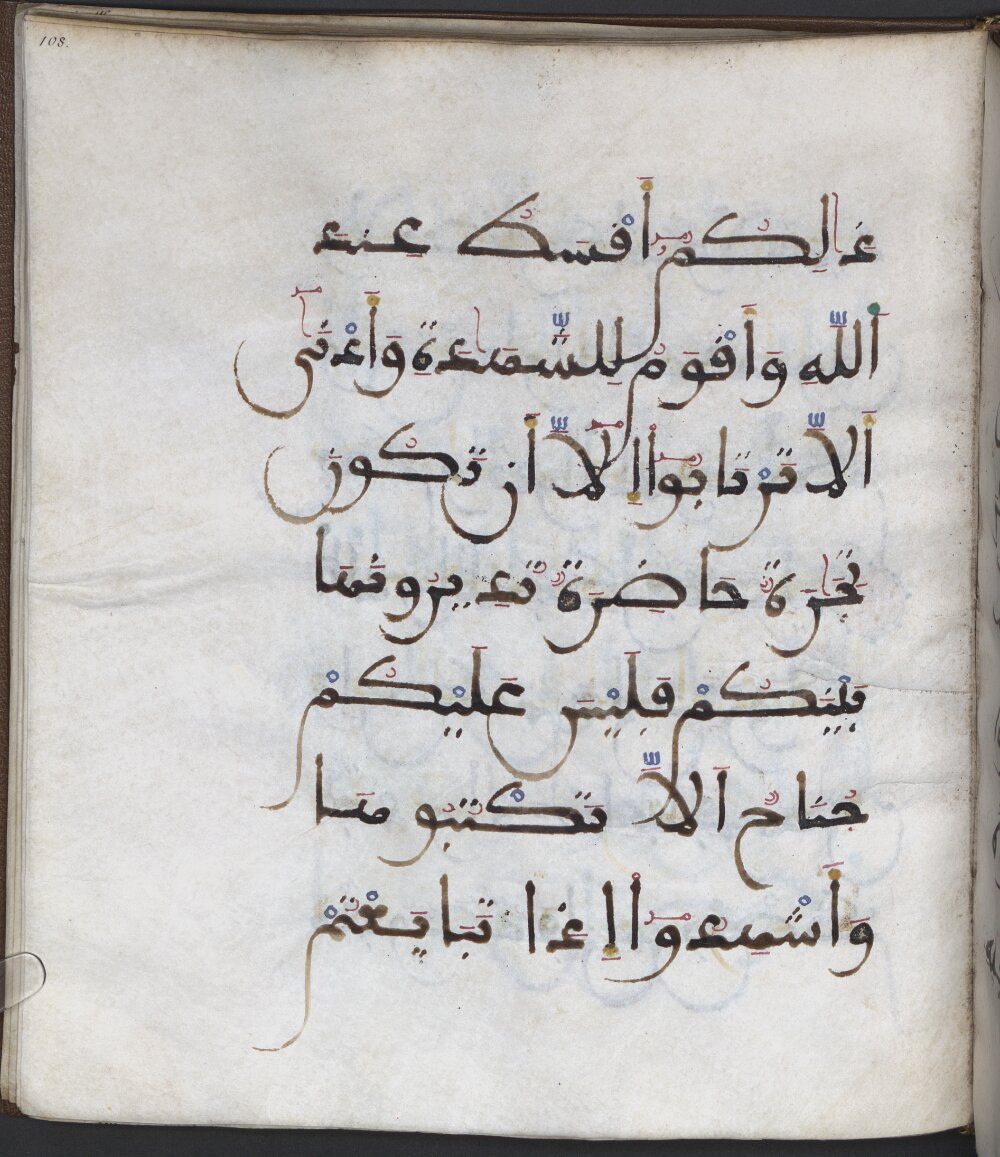 108.
ذَٰلِكُمُۥٓ أَقْسَطُ عِندَ
اَ۬للَّهِ وَأَقْوَمُ لِلشَّهَٰدَةِ وَأَدْنَىٰٓ
أَلَّا تَرْتَابُوٓاْ إِلَّآ أَن تَكُونَ
تِجَٰرَةٌ حَاضِرَةٌ تُدِيرُونَهَا
بَيْنَكُمْ فَلَيْسَ عَلَيْكُمْ
جُنَاحٌ أَلَّا تَكْتُبُوهَا
وَأَشْهِدُوٓاْ إِذَا تَبَايَعْتُمْ